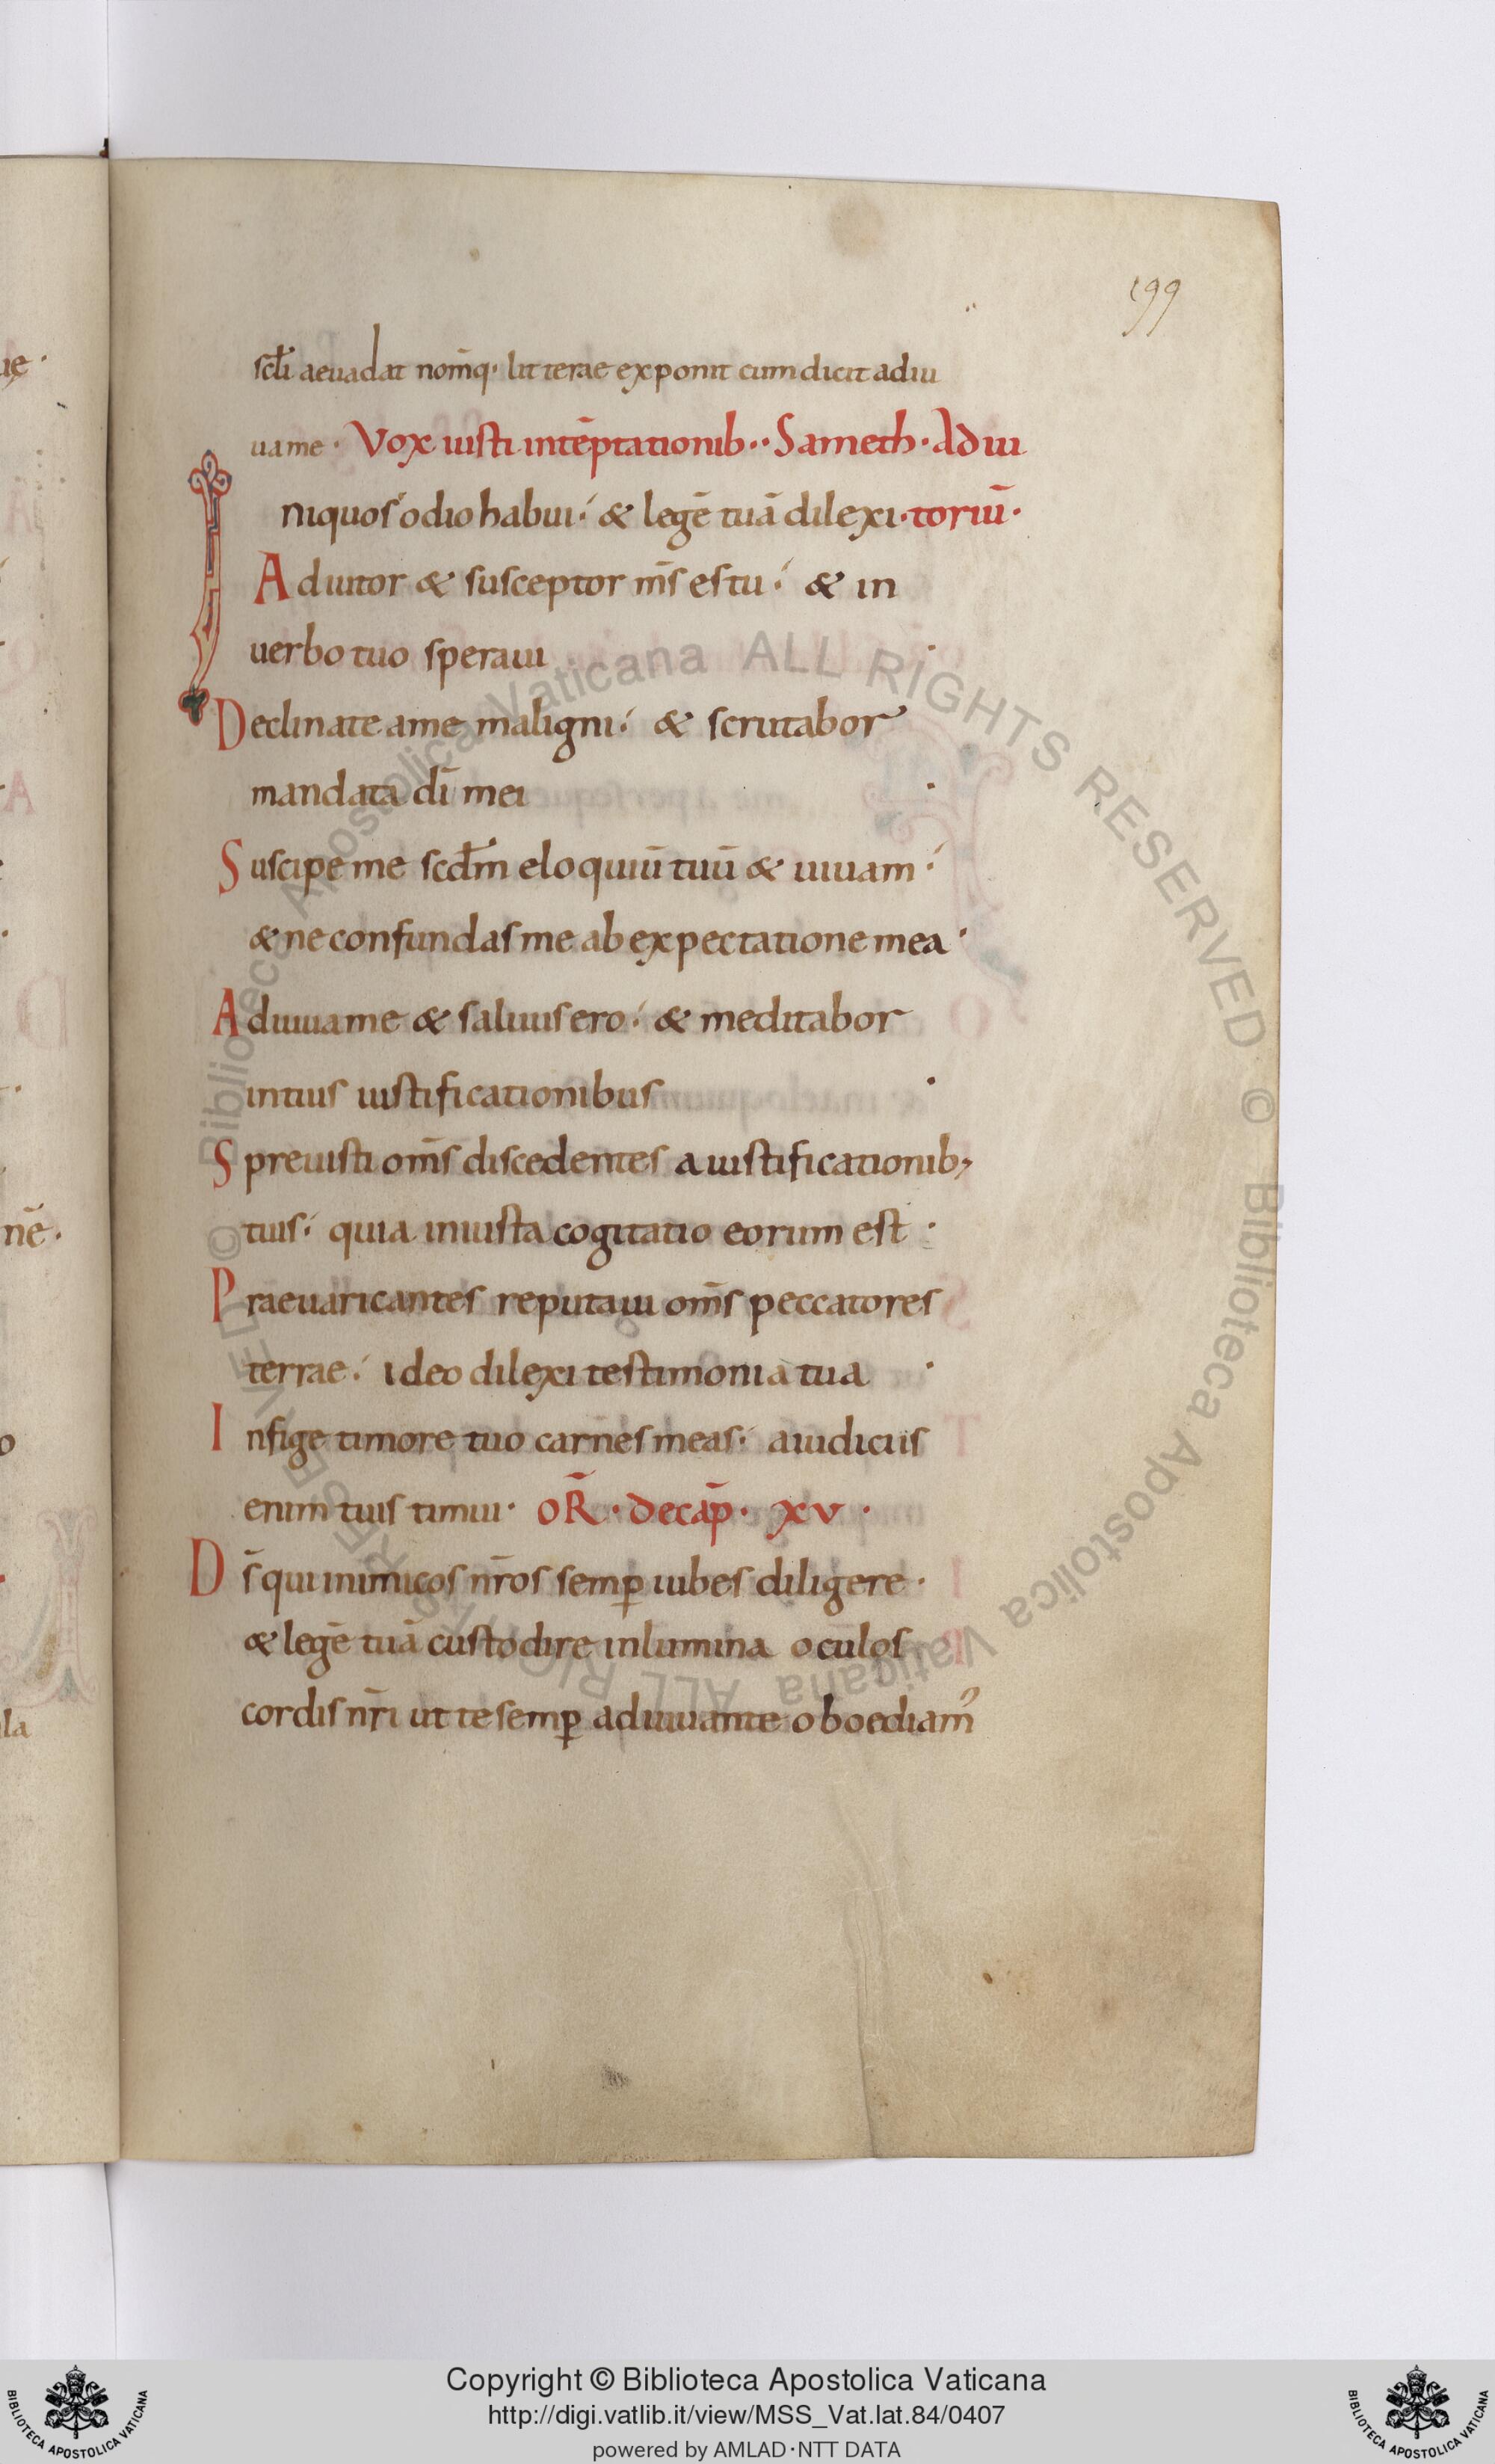 199
scłi aeuadat nom̄q· litterae exponit cum dicit adiu
uame · Vox iusti intēptationib·· Sameth · Adiu
Iniquos odio habui · & legē tuā dilexi · toriū ·
Adiutor & susceptor m̄s es tu · & in
uerbo tuo speraui ·
Declinate a me maligni · & scrutabor
mandata dī mei ·
Suscipe me scđm eloquiū tuū & uiuam ·
& ne confundas me ab expectatione mea ·
Adiuua me & saluus ero · & meditabor
in tuis iustificationibus ·
Spreuisti om̄s discedentes a iustificationib;
tuis · quia iniusta cogitatio eorum est ·
Praeuaricantes reputaui om̄s peccatores
terrae · ideo dilexi testimonia tua ·
Infige timore tuo carnes meas · a iudiciis
enim tuis timui · OR̄ · de cap̄ · XV ·
Ds̄ qui inimicos nr̄os semꝑ iubes diligere ·
& legē tuā custodire inlumina oculos
cordis nr̄i ut te semꝑ adiuuante oboediam᾿
ue ·
nē ·
o
la
© Biblioteca Apostolica Vaticana ALL RIGHTS RESERVED © Biblioteca Apostolica Vaticana ALL RIGHTS RESERVED
BIBLIOTECA APOSTOLICA VATICANA
Copyright © Biblioteca Apostolica Vaticana
http://digi.vatlib.it/view/MSS_Vat.lat.84/0407
powered by AMLAD·NTT DATA
BIBLIOTECA APOSTOLICA VATICANA